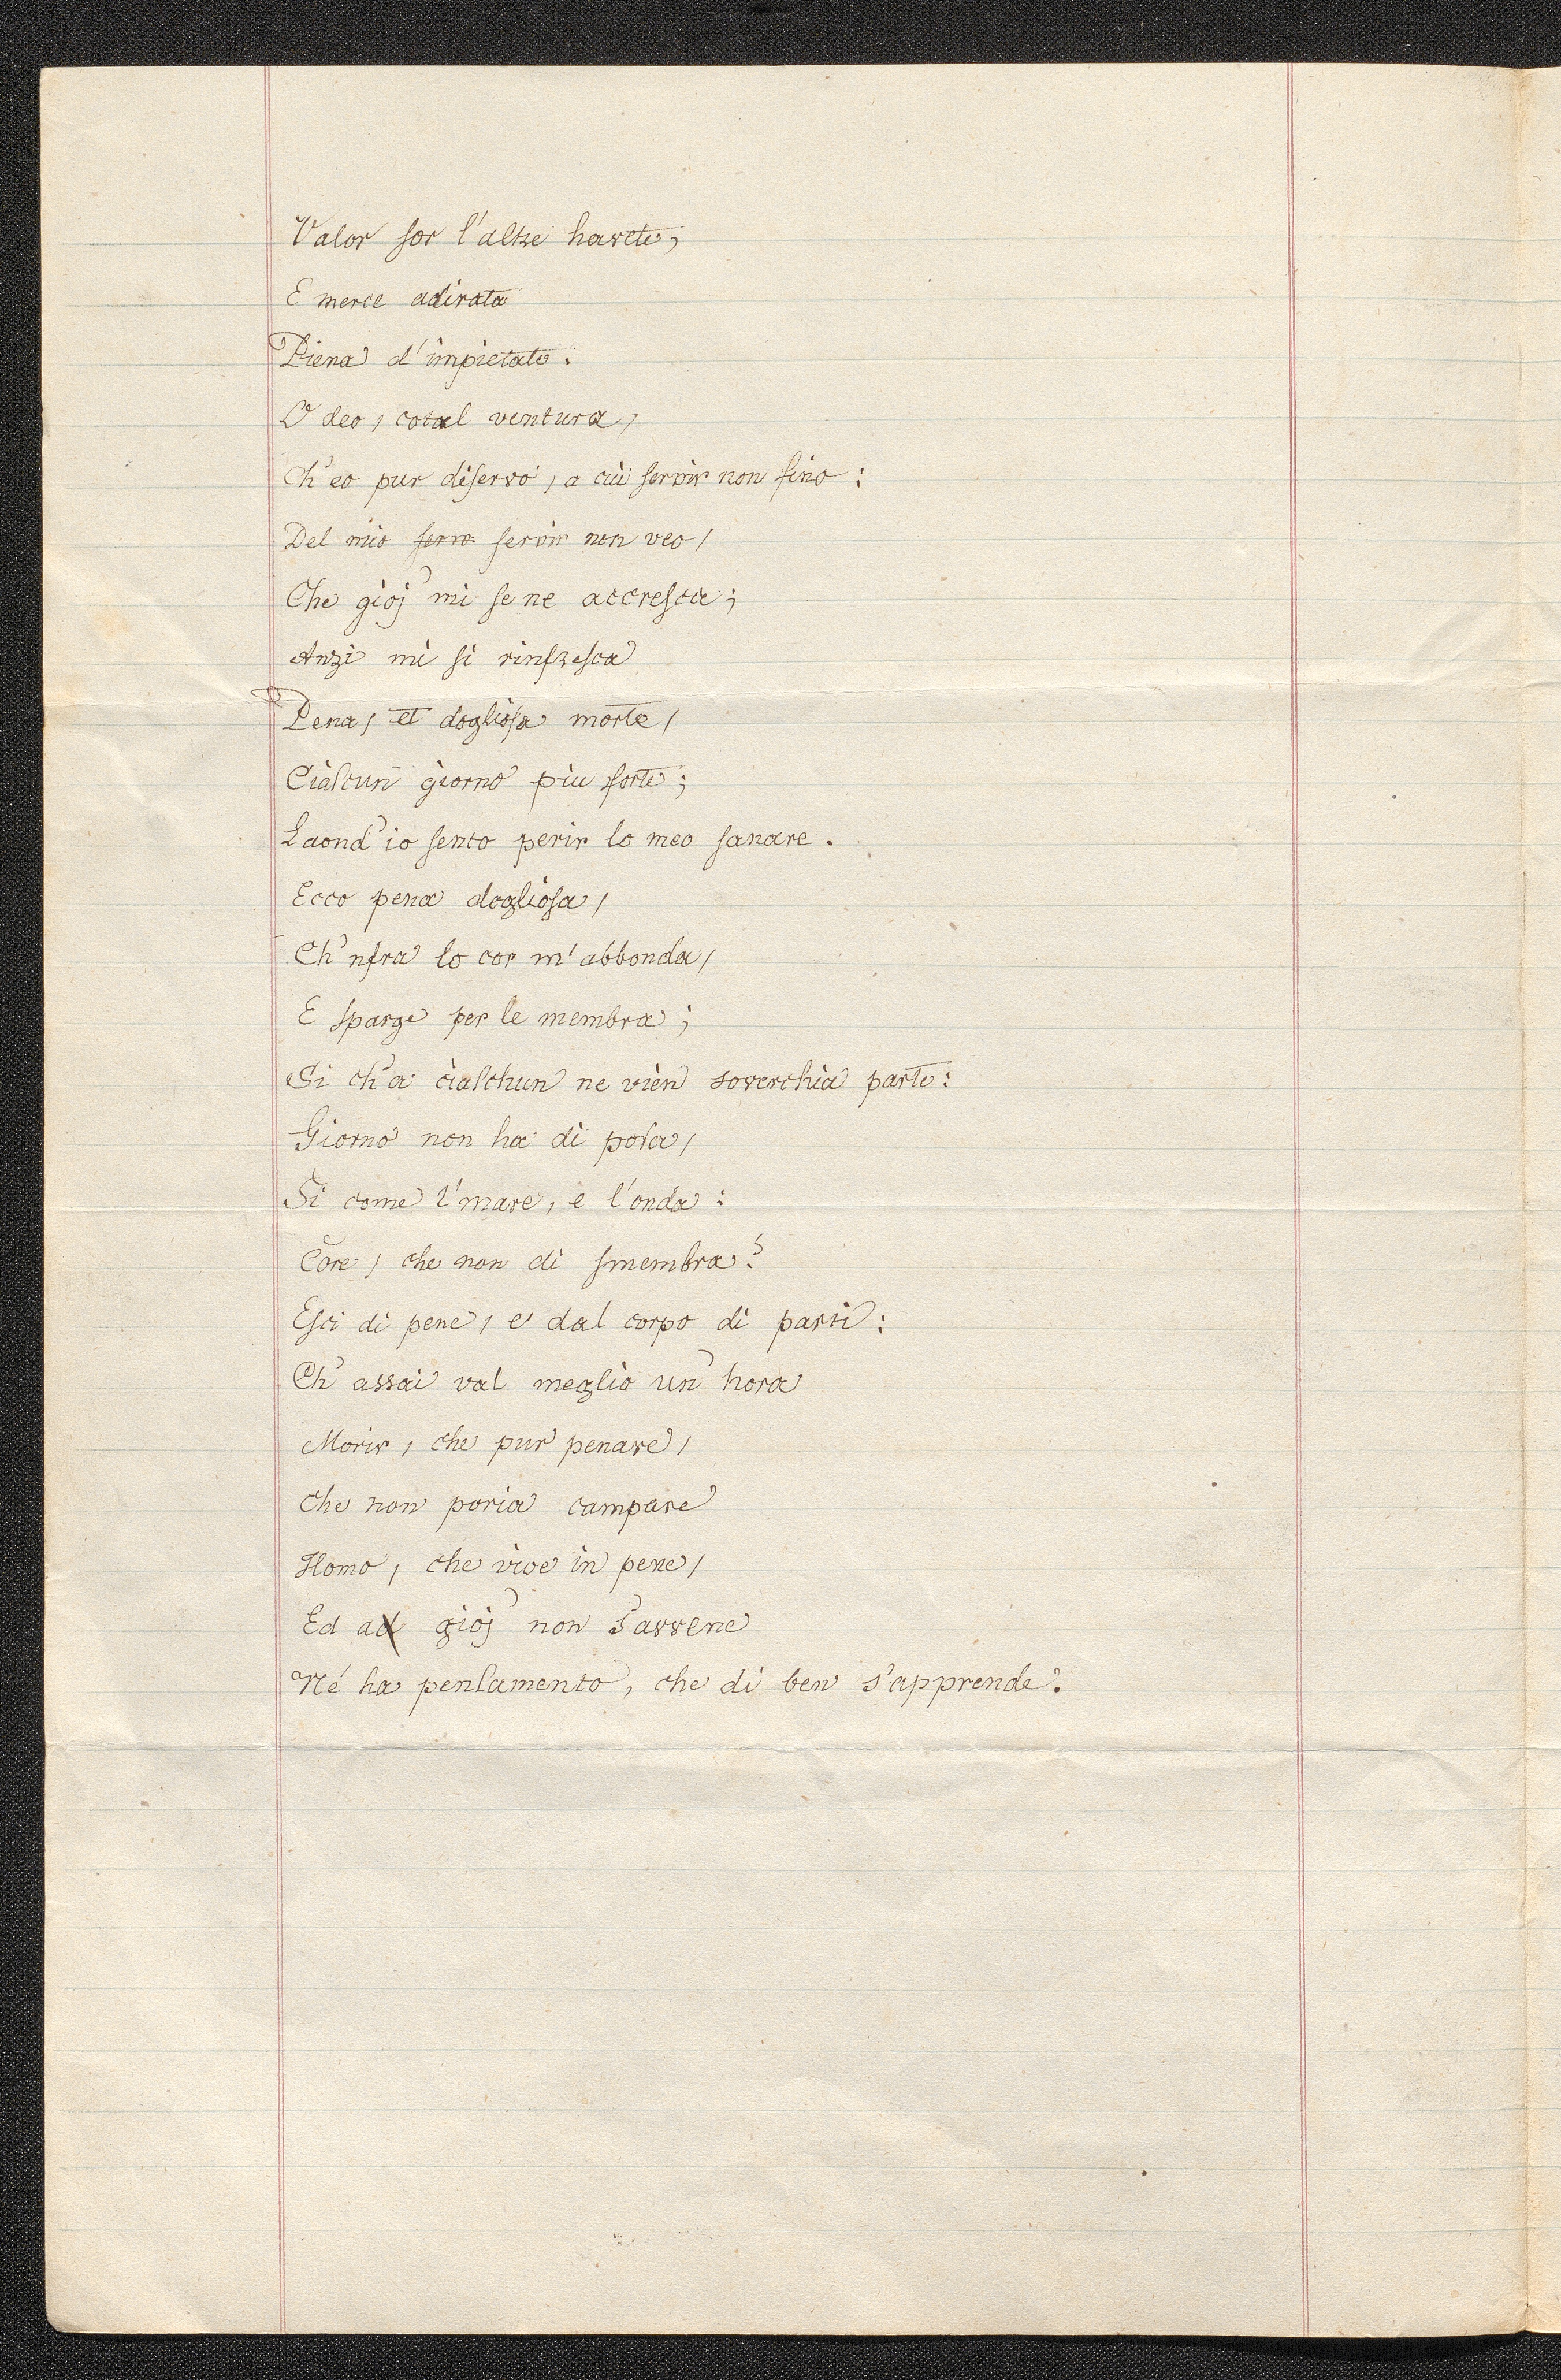 Valor sor l'altre havete,
E merce adirata
Piena d'impietate.
O deo, cotal ventura,
Ch'eo pur diservo, a cui servir non fino:
Del mio servo servir non veo,
Che gioj' mi se ne accresca;
Anzi mi si rinfresca
Pena, et dogliosa morte,
Ciascun giorno piu forte;
Laond'io sento perir lo meo sanare.
Ecco pena dogliosa,
Ch'nfra lo cor m'abbonda,
E sparge per le membra;
Si ch'a ciaschun ne vien soverchia parte:
Giorno non ha di posa,
Si come l'mare, e l'onda:
Core, che non di smembra?
Esci di pene, e dal corpo di parti:
Ch'assai val meglio un'hora
Morir, che pur penare,
Che non poria campare
Homo, che vive in pene,
Ed ad gioj' non s'avvene
Né ha pensamento, che di ben s'apprende.